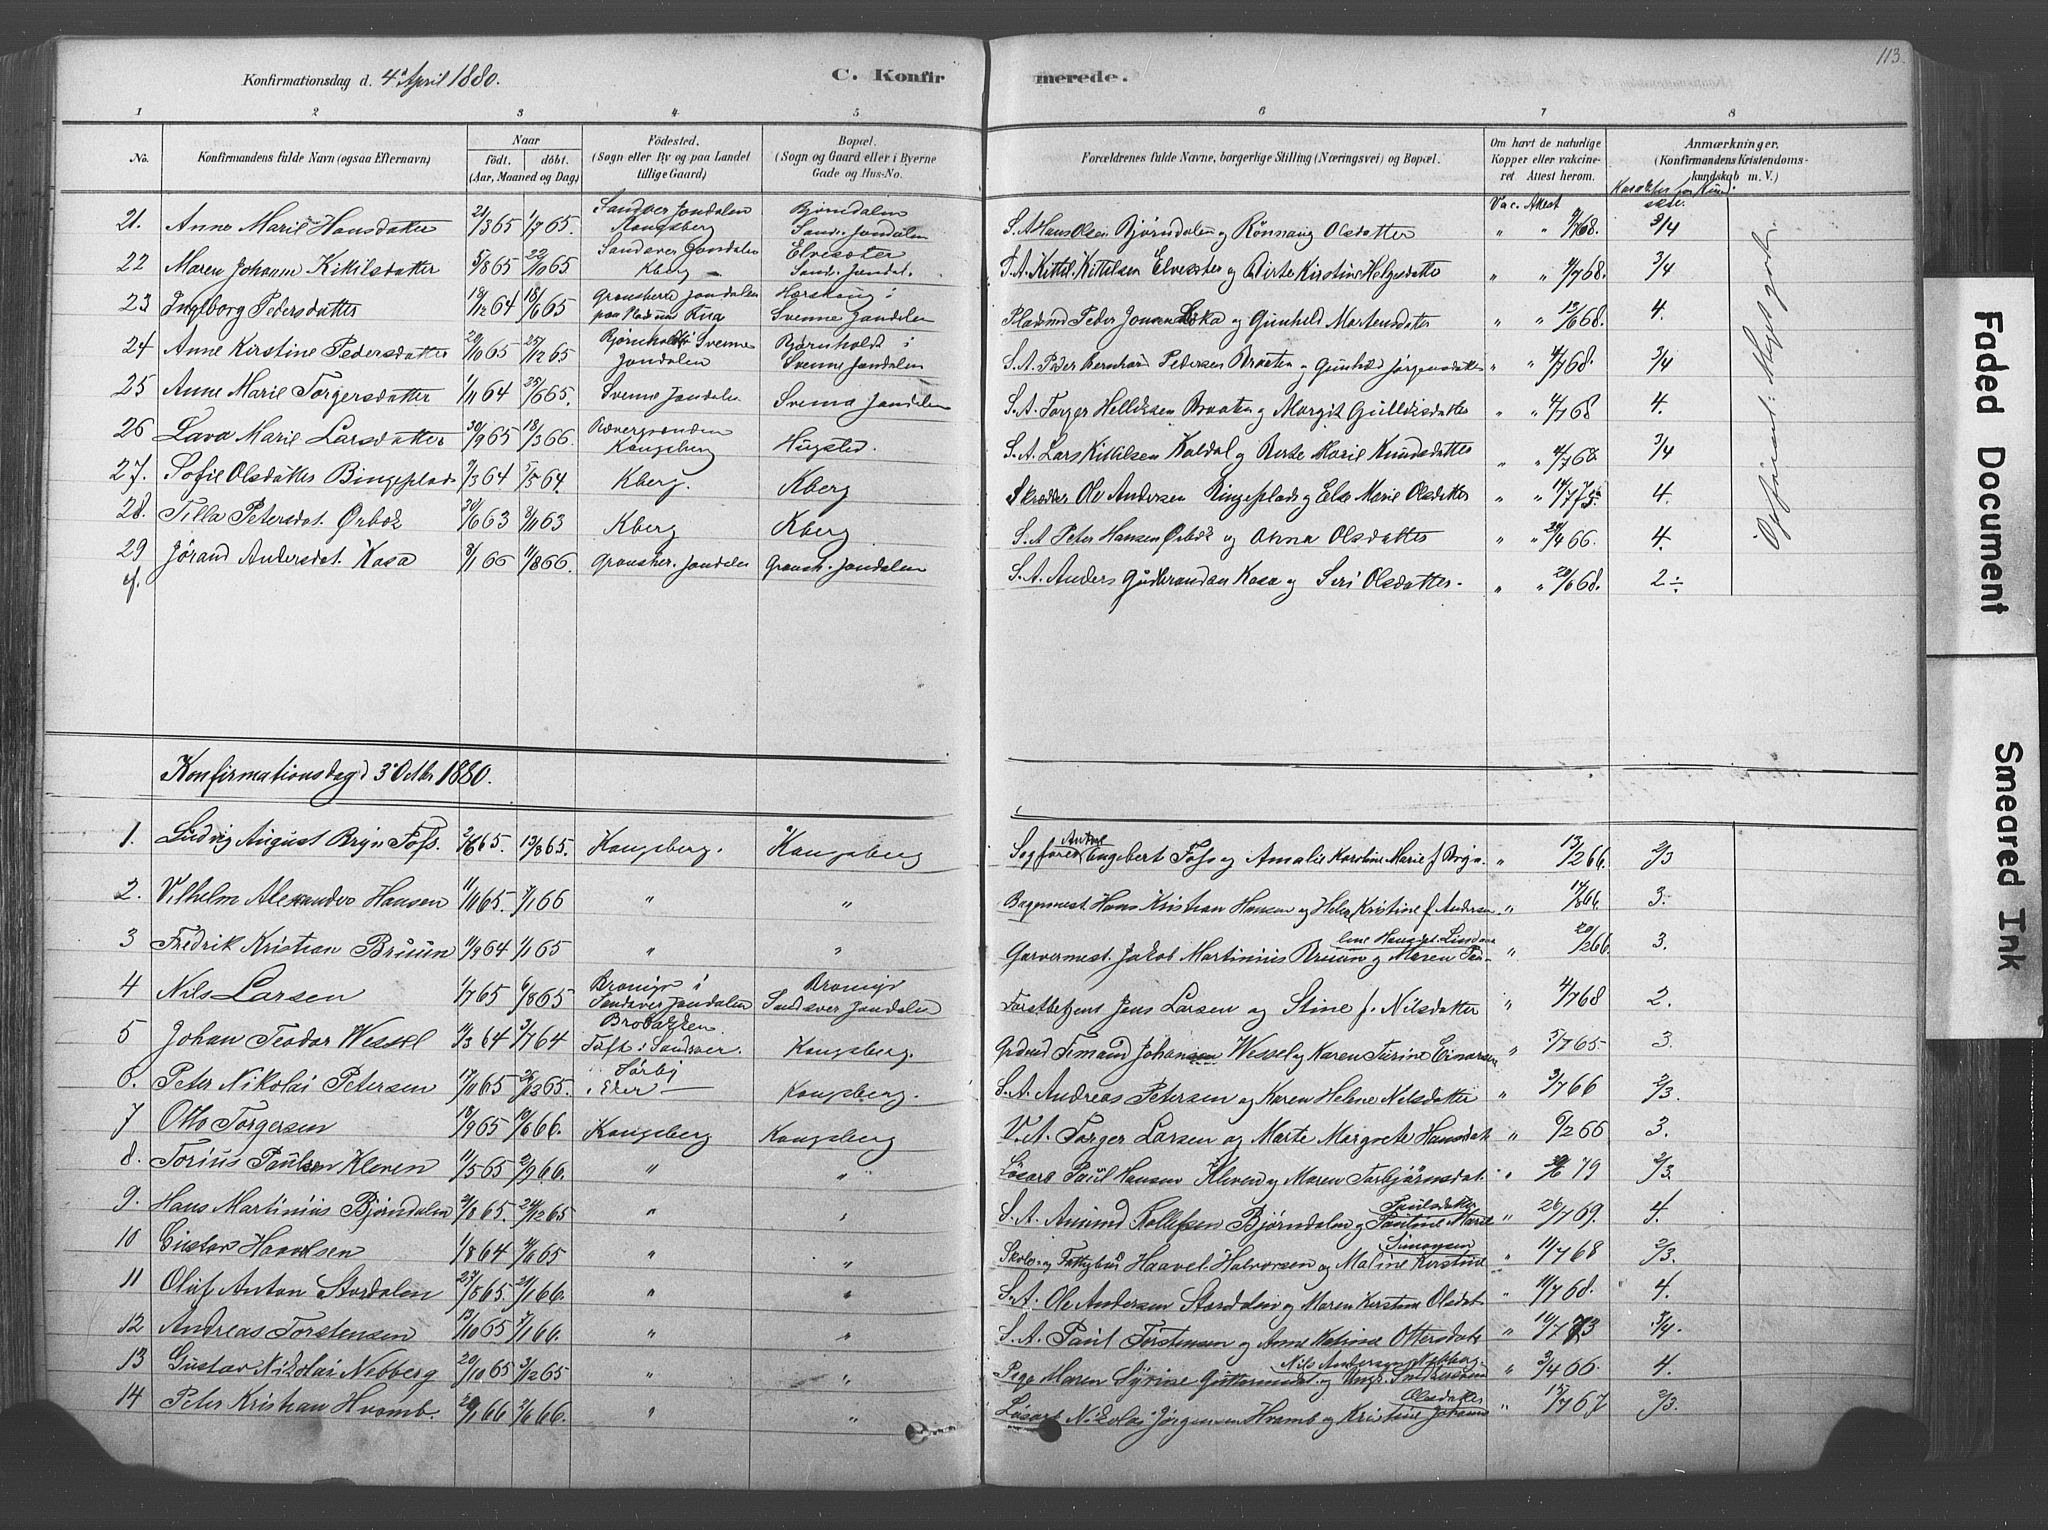 113.
Konfirmationsdag d. 4 April 1880.
C. Konfirmerede.
1 2 3 4 5 6 7 8
No.
Konfirmandens fulde Navn (ogsaa Efternavn)
Naar
födt. döbt.
(Aar, Maaned og Dag)
Födested.
(Sogn eller By og paa Landet
tillige Gaard)
Bopæl.
(Sogn og Gaard eller i Byerne
Gade og Hus-No.
Forældrenes fulde Navne, borgerlige Stilling (Næringsvei) og Bopæl.
Om havt de naturlige
Kopper eller vakcine-
ret Attest herom.
Anmærkninger.
(Konfirmandens Kristendoms-
kundskab m. V.)
Vac. Attest
21. Anne Marie Hansdatter 21/3 65 1/7 65. Sandsver Jondalen Kongsberg Bjørndalen Sands. Jondalen S. A. Hans Olsen Bjørndalen og Rønnaug Olsdatter " " 68. 3/4
22 Maren Johanne Kittilsdatter 5/8 65 22/10 65 Sandsver Jondalen Kberg Elvesster Sands. Jondal. S. A. Kittil Kittilsen Elvesster og Birte Kirstine Helgesdatter " " 4/7 68. 3/4
23 Ingeborg Pedersdatter 18/12 64 18/6 65 Gransherd Jondalen Horskoug i Svenne Jondalen Pladsmd Peder Jonsen og Gunhild Mortensdatter " " 13/6 68. 4.
24 Anne Kirstine Pedersdatter 20/10 65 25/12 65 Bjørnholdt i Svenne Jondalen Bjørnholdt i Svenne Jondalen S. A. Peder Bernhard Pedersen Braaten og Gunhild Jørgensdatter " " 4/7 68. 3/4
25 Anne Marie Torgersdatter 1/11 64 25/6 65. Svenne Jondalen Svenne Jondalen S. A. Torger Helliksen Braaten og Margit Gulliksdatter " " 4/7 68 4.
26 Lava Marie Larsdatter 30/9 65 18/3 66. Kongsberg Hugsted. S. A. Lars Kittilsen Koldal og Berte Marie Knudsdatter " " 4/7 68. 3/4
27. Sofie Olsdatter Bingeplads 7/3 64 1/5 64. Kberg. Kberg Skrædder Ole Andersen Bingeplads og Else Marie Olsdatter " " 14/7 75. 4.
28. Tilla Petersdat. Ørbæk 20/6 63 8/11 63 Kberg Kberg S. A Peter Hansen Ørbæk og Anna Olsdatter " " 29/4 66. 4.
29 Jørand Andersdat. Kasa 8/1 66 11/8 66. Gransher. Jondalen Gransh. Jondalen S. A. Anders Gudbrandsen Kasa og Siri Olsdatter. " " 20/6 68. 2 ÷
Opførsel: Meget godt.
Konfirmationsdag d 3 Octbr 1880.
1. Ludvig August Bryn Foss. 65. 13/8 65. Kongsberg. Kongsberg Sagfører Anton Engebert Foss og Amalie Karoline Marie f Bryn. " 13/2 66. 2/3
2. Vilhelm Alexander Hansen 11/10 65. 7/1 66 " " Bagermest. Hans Kristian Hansen og Helene Kristine f. Andersen " 14/8 66. 3.
3 Fredrik Kristian Bruun 11/9 64 1/1 65 " " Garvermest. Jakob Martinius Bruun og Maren " 20/2 66. 3.
4 Nils Larsen 1/7 65 6/8 65 i Sandsver Jondalen Sandsver Jondalen Forstbetjent Jens Larsen og Stine f. Nilsdatter " 4/7 68 2.
5 Johan Teodor Wessel 11/3 64 3/7 64 Brobakken Tuft i Sandsver. Kongsberg. Johansen Wessel og Karen Turine Einarsen " 5/7 65. 3.
6. Peter Nikolai Petersen 17/11 65 26/12 65. Sørby i Eker Kongsberg. S. A. Andreas Petersen og Karen Helene Nilsdatter " 3/7 66 2/3.
7 Otto Torgersen 18/9 65 10/6 66. Kongsberg Kongsberg V. A. Torger Larsen og Marte Margrete Hansdat " 6/2 66 3.
8. Torius Paulsen Kleven 11/5 65 2/9 66. " " Løsarb Paul Hansen Kleven og Maren Torbjørnsdat. " 79 2/3.
9. Hans Martinius Bjørndalen 3/8 65. 24/12 65 " " S. A. Amund Tollefsen Bjørndalen og Pauline Marie Paulsdatter " 26/7 69. 4.
10 Gustav Haavelsen 1/8 64 65 " " Haavel Halvorsen og Maline Kirstine Simonsen " 11/7 68 2/3.
11 Oluf Anton Stordalen 27/8 65. 21/1 66. " " S. A. Ole Andersen Stordalen og Maren Kirstine Olsdat. " 11/7 68. 4.
12 Andreas Torstensen 13/10 65 7/1 66. " " S. A. Paul Torstensen og Anne Katrine Ottersdatr " 10/7 73 3/4.
13 Gustav Nikolai Nebberg 20/10 65 3/12 65 " " Pige Maren Syrine Guttormsdat. og Ungk. Nils Andersen Nebberg " 3/4 66. 4.
14 Peter Kristian Hvamb. 66 66. " " Løsarb Nikolai Jørgensen Hvamb og Kristine Johanne Olsdatter " 15/7 67 2/3.
Faded Document
Smeared Ink